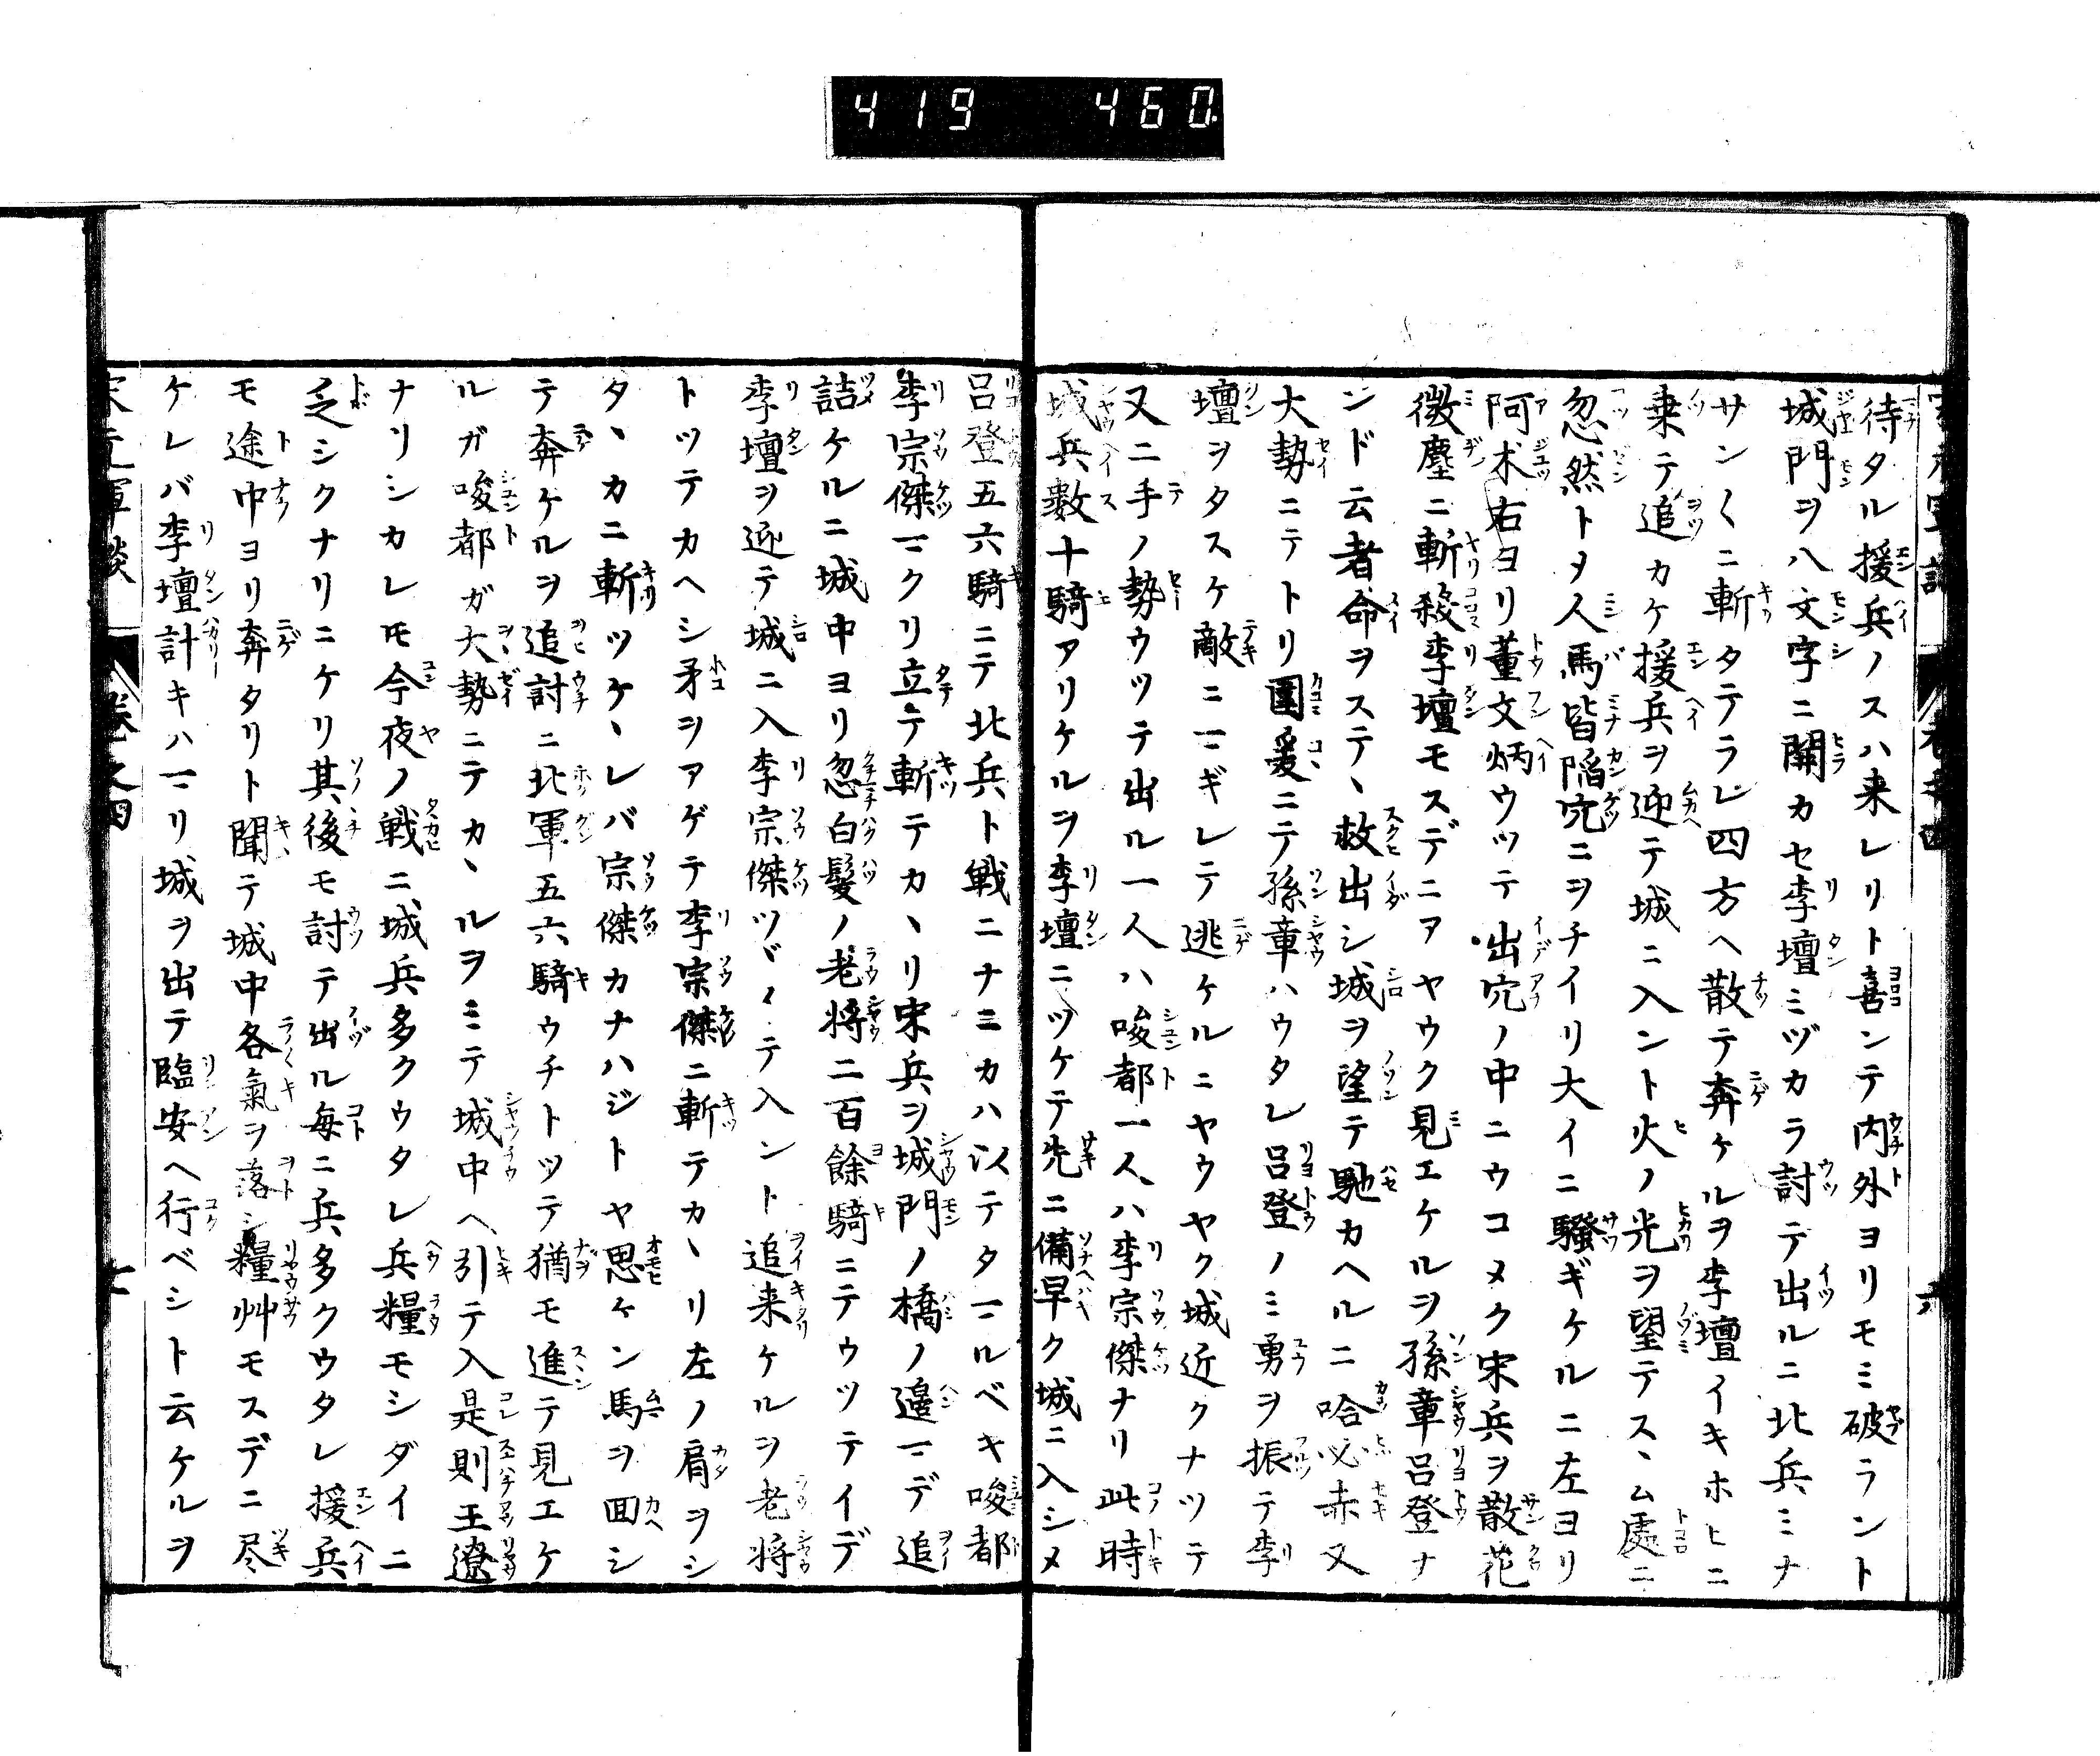 419 460
待タル援兵ノスハ来レリト喜ンテ内外ヨリモミ破ラント
城門ヲ八文字ニ開カセ李壇ミヅカラ討デ出ルニ北兵ミナ
サン〱ニ斬タテラレ四方ヘ散テ奔ケルヲ李壇イキホヒニ
乗テ追カケ援兵ヲ迎テ城ニ入ント火ノ光ヲ望テスヽム處ニ
忽然トメ人馬皆陷穴ニヲチイリ大イニ騒ギケルニ左ヨリ
阿术右ヨリ董文炳ウツテ出穴ノ中ニウコメク宋兵ヲ散花
微塵ニ斬殺李壇モスデニアヤウク見エケルヲ孫章呂登ナ
ンド云者命ヲステヽ救出シ城ヲ望テ馳カヘルニ哈必赤又
大勢ニテトリ圍爰ニテ孫章ハウタレ呂登ノミ勇ヲ振テ李
壇ヲタスケ敵ニマギレテ逃ケルニヤウヤク城近クナツテ
又二手ノ勢ウツテ出ル一人ハ唆都一人ハ李宗傑ナリ此時
城兵數十騎アリケルヲ李壇ニツケテ先ニ備早ク城ニ入シメ
呂登五六騎ニテ北兵ト戦ニナニカハ以テタマルベキ唆都
李宗傑マクリ立テ斬テカヽリ宋兵ヲ城門ノ橋ノ邉マデ追
詰ケルニ城中ヨリ忽白髮ノ老将二百餘騎ニテウツテイデ
李壇ヲ迎テ城ニ入李宗傑ツヾイテ入ント追来ケルヲ老将
トツテカヘシ矛ヲアゲテ李宗傑ニ斬テカヽリ左ノ肩ヲシ
タヽカニ斬ツケヽレバ宗傑カナハジトヤ思ケン馬ヲ回シ
テ奔ケルヲ追討ニ北軍五六騎ウチトツテ猶モ進テ見エケ
ルガ唆都ガ大勢ニテカヽルヲミテ城中ヘ引テ入是則王遼
ナリシカレ𪜈今夜ノ戦ニ城兵多クウタレ兵糧モシダイニ
乏シクナリニケリ其後モ討テ出ル毎ニ兵多クウタレ援兵
モ途中ヨリ奔タリト聞テ城中各氣ヲ落シ糧艸モスデニ尽
ケレバ李壇計キハマリ城ヲ出テ臨安ヘ行ベシト云ケルヲ
宋元軍談 卷之四 七